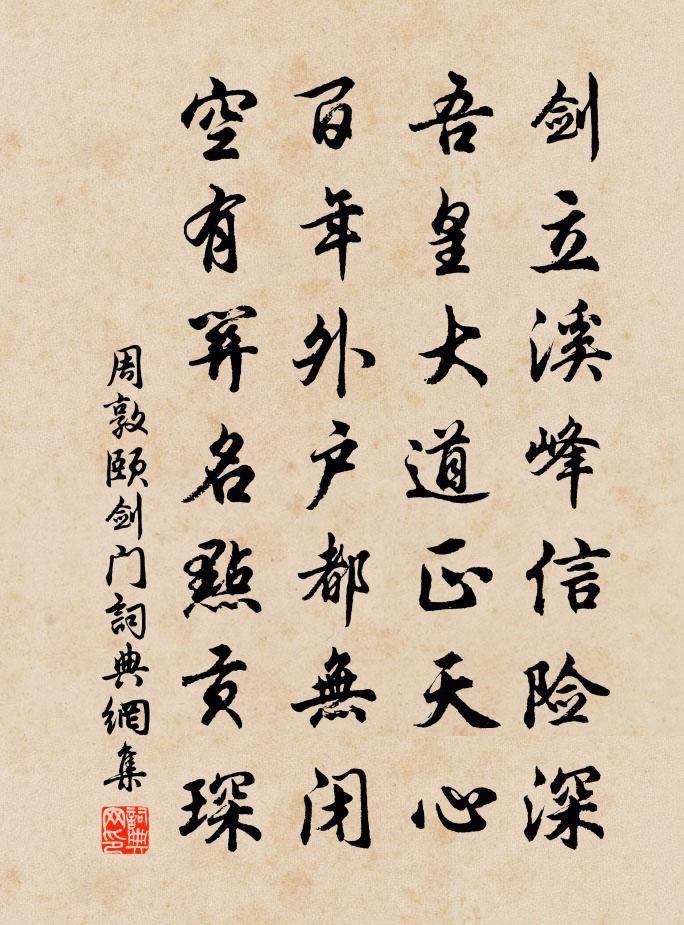 剑立溪峰信险深
吾皇大道正天心
百年外户都無闭
空有關名點贡琛
周敦颐剑门詞典網集
詞典网印